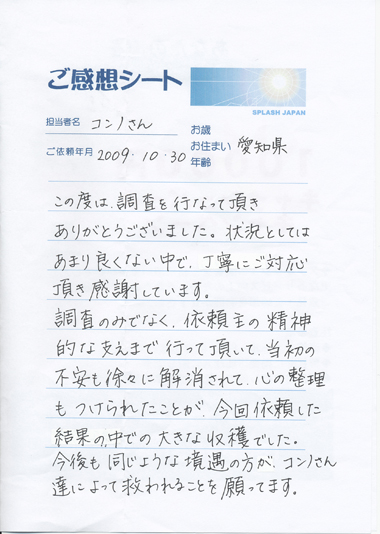 ご感想シート
SPLASH JAPAN
担当者名 コンノさん
お歳
ご依頼年月 2009.10.30
お住まい 愛知県
年齢
この度は、調査を行なって頂き
ありがとうございました。状況としては
あまり良くない中で、丁寧にご対応
頂き感謝しています。
調査のみでなく、依頼主の精神
的な支えまで行って頂いて、当初の
不安も徐々に解消されて、心の整理
もつけられたことが、今回依頼した
結果の中での大きな収穫でした。
今後も同じような境遇の方が、コンノさん
達によって救われることを願ってます。